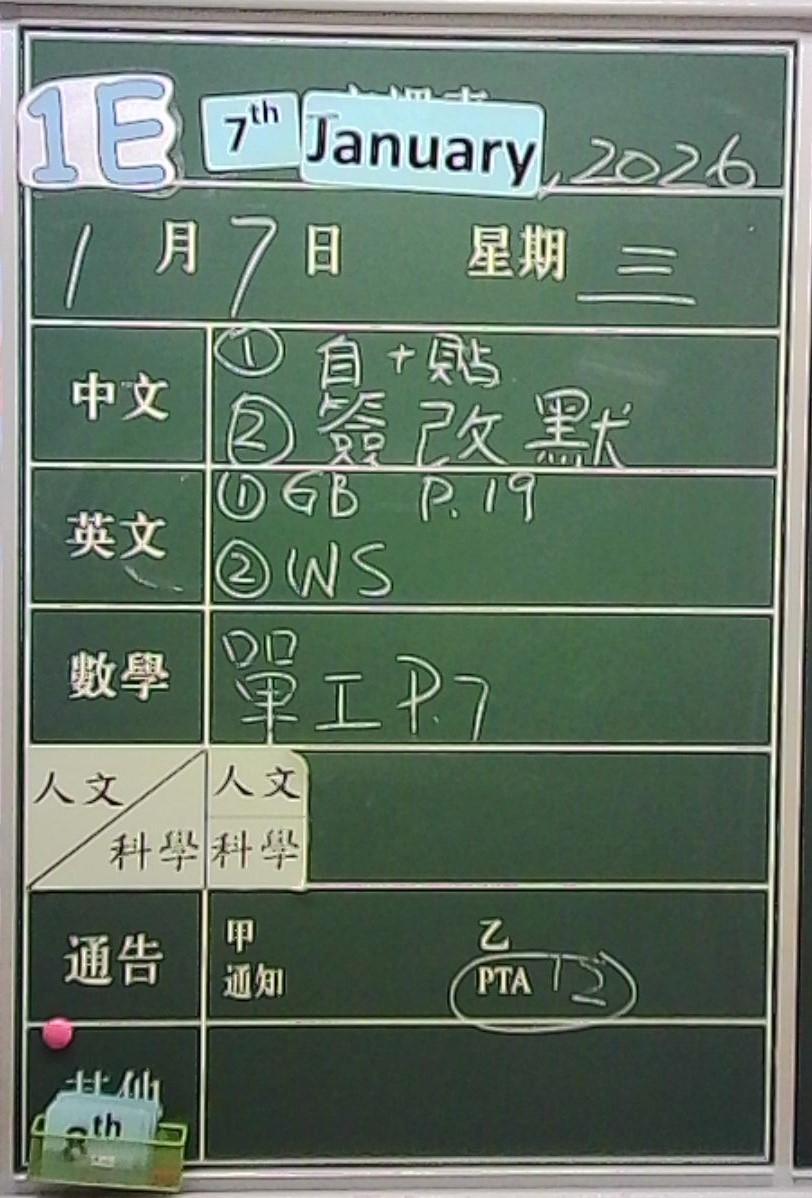 1E 7th January, 2026
1月7日 星期三
中文 ① 自+貼
② 簽改默
英文 ① GB P.19
② WS
數學 單工 P.7
人文 人文
科學 科學
通告 甲 乙
通知 PTA 12
其他
8th